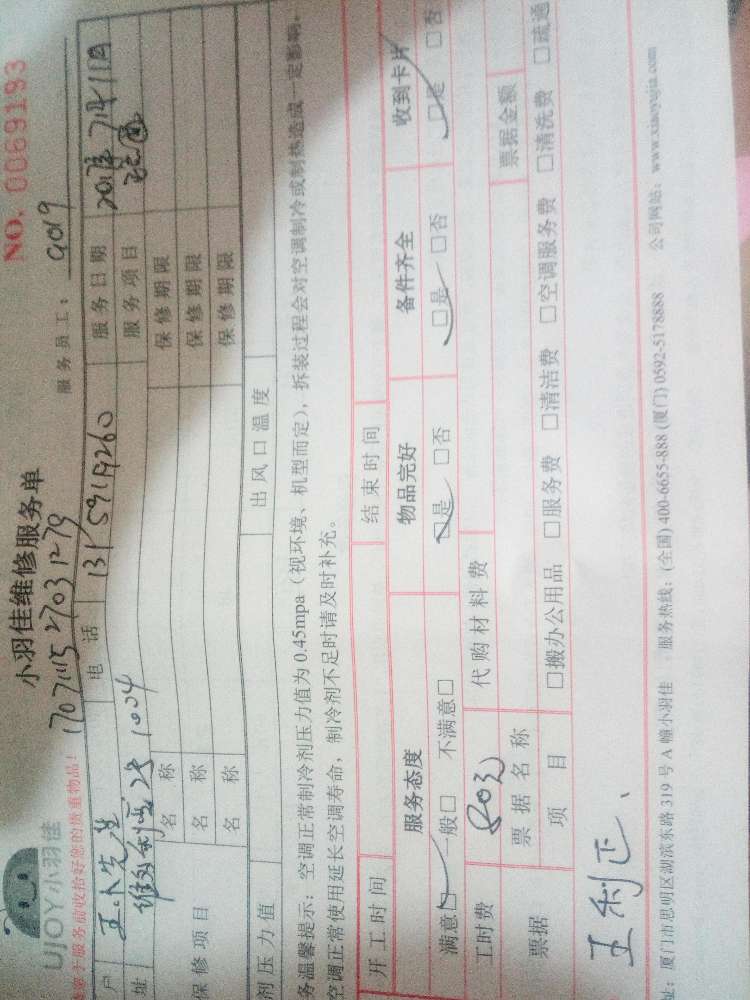 NO. 0069193
小羽佳维修服务单
UJOY小羽佳
服务员工： 9019
1707111527031279
于服务前收拾好您的贵重物品！
户 王小先生 电 话 13159219260 服务日期 2017年7月11日
址 维多利亚 1004 服务项目
保修项目 名 称 保修期限
名 称 保修期限
名 称 保修期限
剂压力值 出风口温度
务温馨提示：空调正常制冷剂压力值为 0.45mpa（视环境、机型而定），拆装过程会对空调制冷或制热造成一定影响。
空调正常使用延长空调寿命，制冷剂不足时请及时补充。
开工时间 结束时间
服务态度 物品完好 备件齐全 收到卡片
满意□ 一般□ 不满意□ □是 □否 □是 □否 □是 □否
工时费 80元 代购材料费
票据 票据名称 票据金额
项 目 □搬办公用品 □服务费 □清洁费 □空调服务费 □清洗费 □疏通
王利正
址：厦门市思明区湖滨东路 319 号 A 幢小羽佳 服务热线：(全国) 400-6655-888 (厦门) 0592-5178888 公司网站：www.xiaoyujia.com